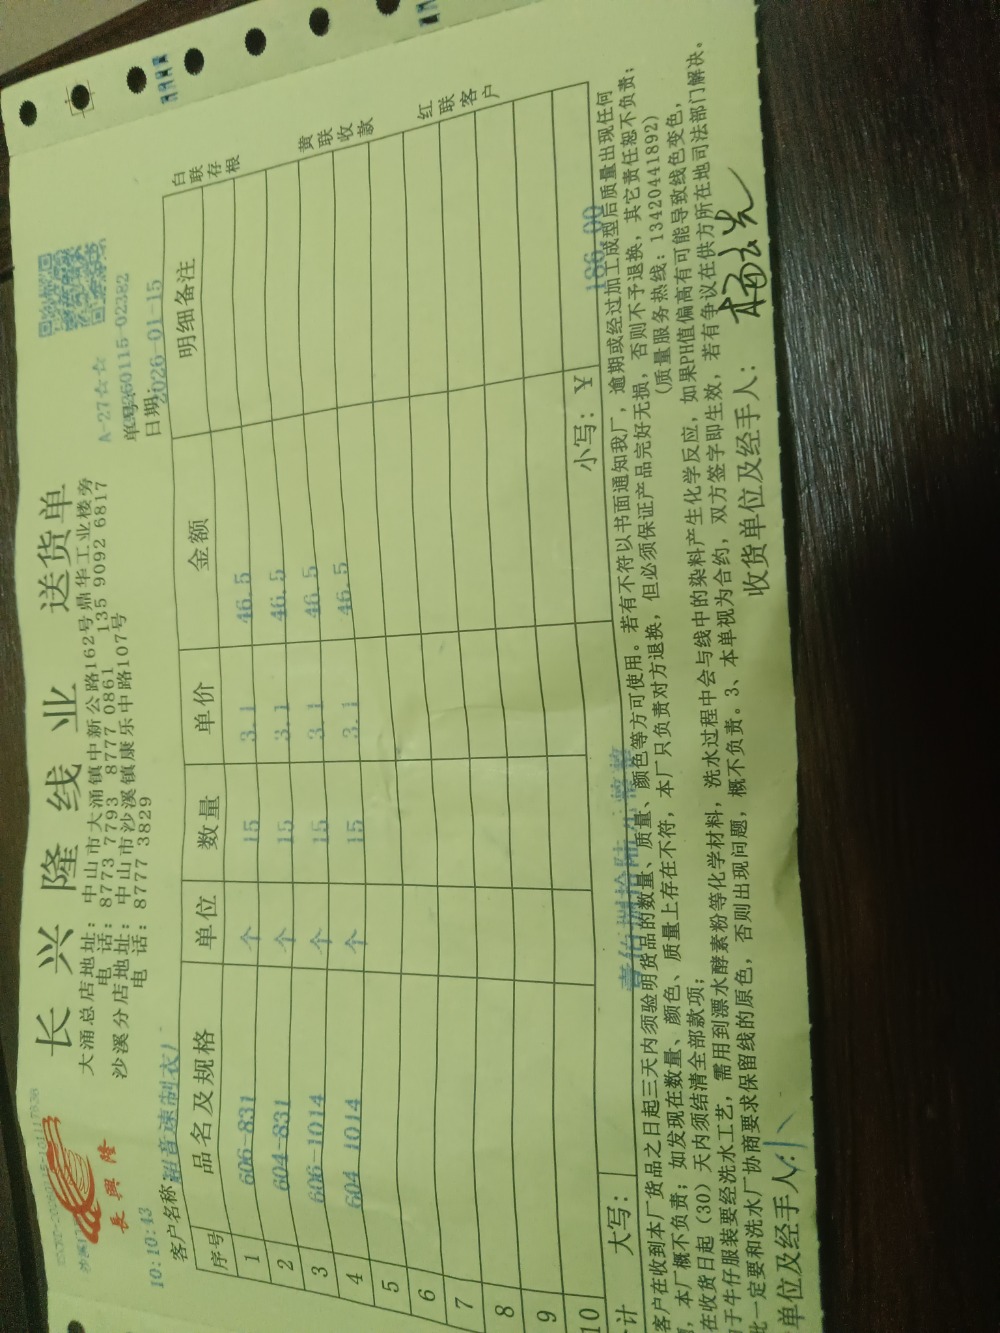 长兴隆线业 送货单
長興隆
大涌总店地址：中山市大涌镇中新公路162号鼎华工业楼旁
电 话：8773 7793 8777 0861 135 9092 6817
沙溪分店地址：中山市沙溪镇康乐中路107号
电 话：8777 3829
A-27☆☆
单号：260115-02382
日期：2026-01-15
10:10:43
客户名称 超音速制衣
序号 品名及规格 单位 数量 单价 金额 明细备注
1 606-831 个 15 3.1 46.5
2 604-831 个 15 3.1 46.5
3 606-1014 个 15 3.1 46.5
4 604 1014 个 15 3.1 46.5
5
6
7
8
9
10
计 大写： 壹佰捌拾陆 小写：￥ 186.00
白联存根
黄联收款
红联客户
客户在收到本厂货品之日起三天内须验明货品的数量、质量、颜色等方可使用。若有不符以书面通知我厂，逾期或经过加工成型后质量出现任何
，本厂概不负责；如发现在数量、颜色、质量上存在不符，本厂只负责对方退换，但必须保证产品完好无损，否则不予退换，其它责任恕不负责；
在收货日起（30）天内须结清全部款项； （质量服务热线：13420441892）
于牛仔服装要经洗水工艺，需用到漂水酵素粉等化学材料，洗水过程中会与线中的染料产生化学反应，如果PH值偏高有可能导致线色变色，
此一定要和洗水厂协商要求保留线的原色，否则出现问题，概不负责。3、本单视为合约，双方签字即生效，若有争议在供方所在地司法部门解决。
单位及经手人： 收货单位及经手人：